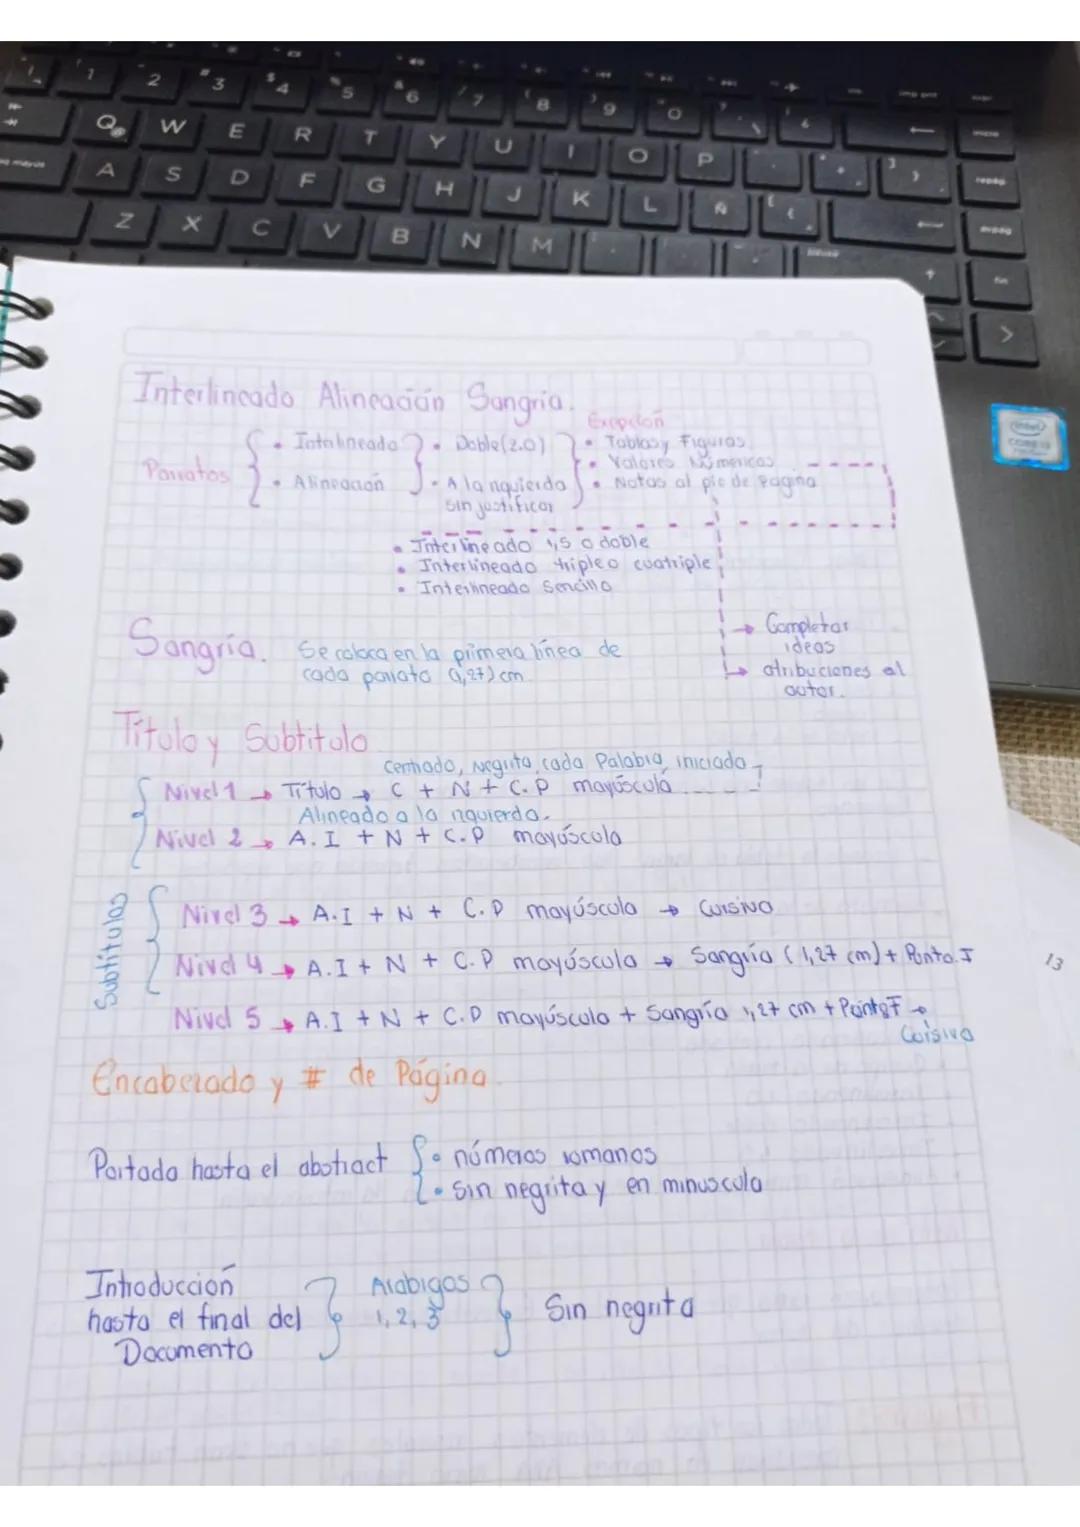 Interlineado Alineación Sangria.
Exepción
Parratos
• Interlineado • Doble (2.0) • Tablas y Figuras
• Valores Númericos
• Alineación • A la izquierda • Notas al pie de Página
sin justificar
• Interlineado 1,5 o doble
• Interlineado triple o cuatriple
• Interlineado Sencillo
→ Completar
ideas
→ atribuciones al
autor.
Sangría. Se coloca en la primera línea de
cada parrato (1,27) cm
Título y Subtitulo
Centrado, Negrita, cada Palabra iniciada
Nivel 1 → Título → C + N + C.P mayúscula
Alineado a la izquierda.
Nivel 2 → A.I + N + C.P mayúscula
Subtitulos
Nivel 3 → A.I + N + C.P mayúscula → Cursiva
Nivel 4 → A.I + N + C.P mayúscula → Sangría (1,27 cm) + Punto.F
Nivel 5 → A.I + N + C.P mayúscula + Sangría 1,27 cm + Punto F →
Cursiva
Encabezado y # de Página.
Portada hasta el abstract • números romanos
• Sin negrita y en minuscula
Introducción
hasta el final del
Documento
Arabigos
1, 2, 3
Sin negrita
13
intel
CORE i3
Q W E R T Y U I O P
A S D F G H J K L Ñ
Z X C V B N M